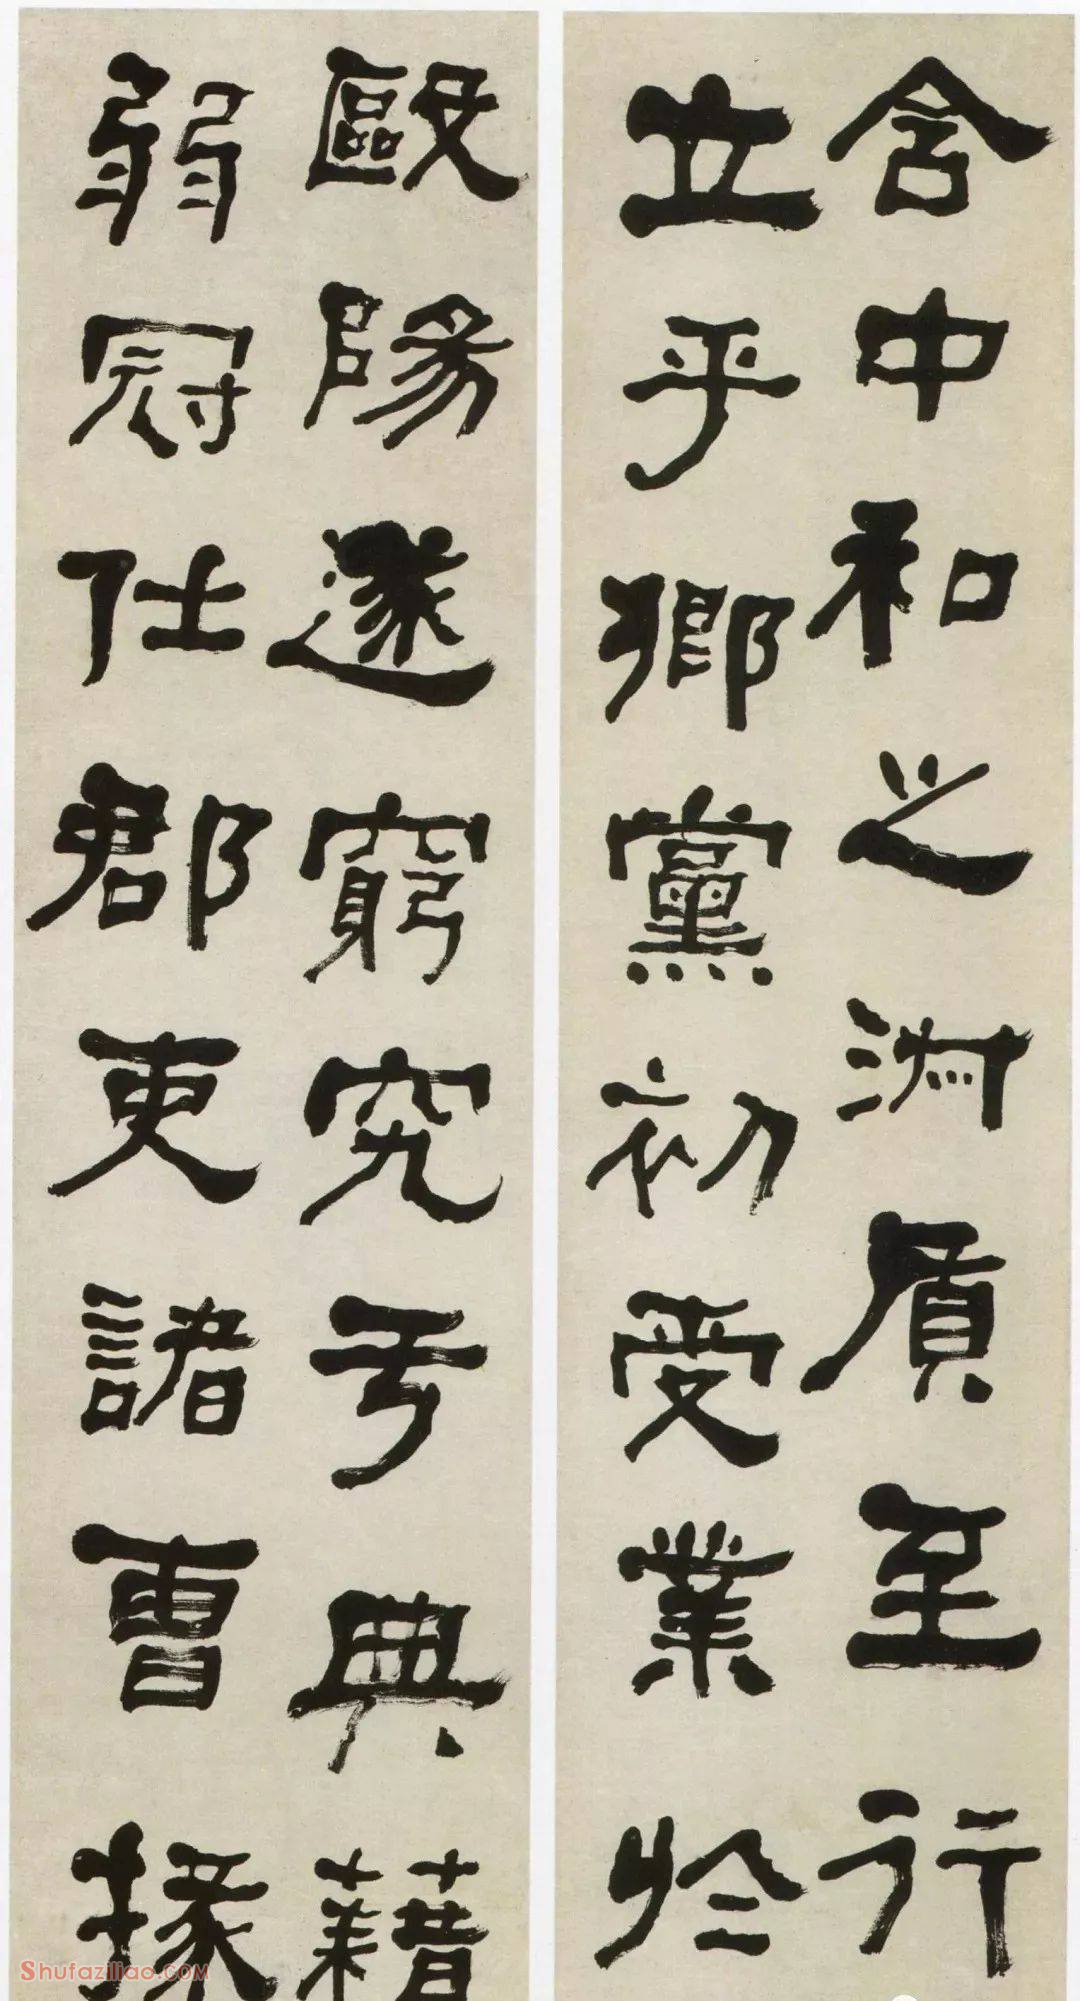 含中和之淑質至行
立乎鄉黨初受業於
毆陽遂窮究于典藉
弱冠仕郡吏諸曹掾
Shufaziliao.com